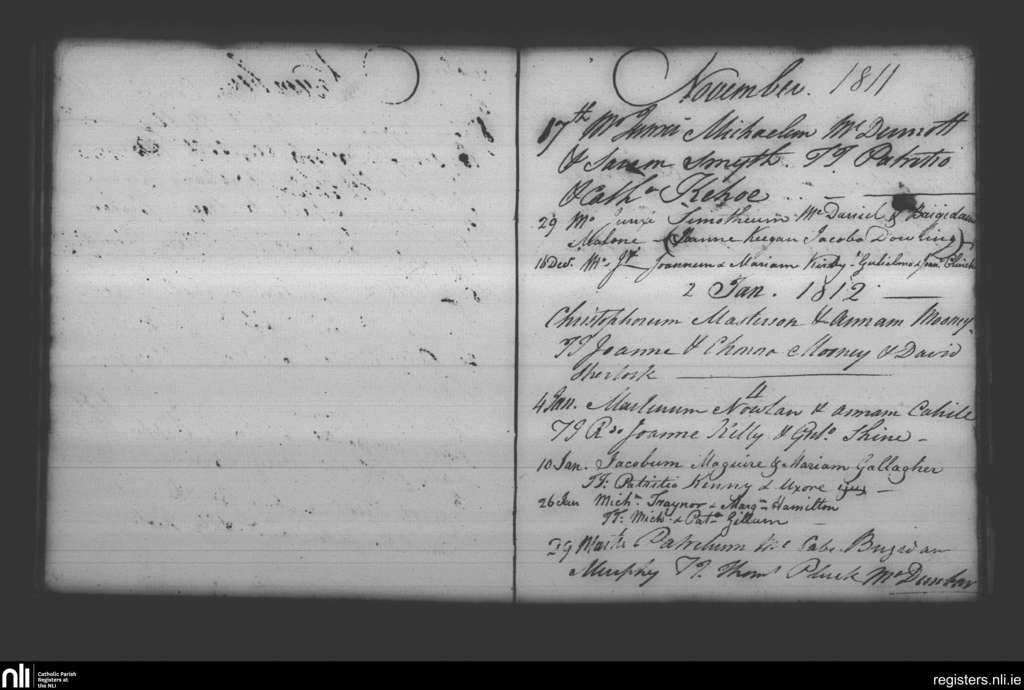 November. 1811
17th Mo Junxi Michaelem McDermott
& Saram Smyth. TT Patritio
& Catha Kehoe
29 Mo Junxi Timotheum McDaniel & Baigidam
Malone (Joanne Keegan Jacobo Dowling)
16 Decr. Mo Jxi Joannem & Mariam Kirby Gulielmo &
2 Jan. 1812
Christophorum Masterson & Annam Mooney
TT Joanne & Honora Mooney & David
Sherlock
4
4 Jan. Martinum Nowlan & Annam Cahill
TT Rdo Joanne Kelly & Shine
10 Jan. Jacobum Maguire & Mariam Gallagher
TT: Patritio Kenny & Uxore ejus
26 Jan Michm Traynor & Margm Hamilton
TT: Michl & Patk Gillum
29 Patricium Mc Cabe Brigidam
Murphy TT. Thoms Pluck Mc Dunbar
nli
Catholic Parish
Registers at
the NLI
registers.nli.ie